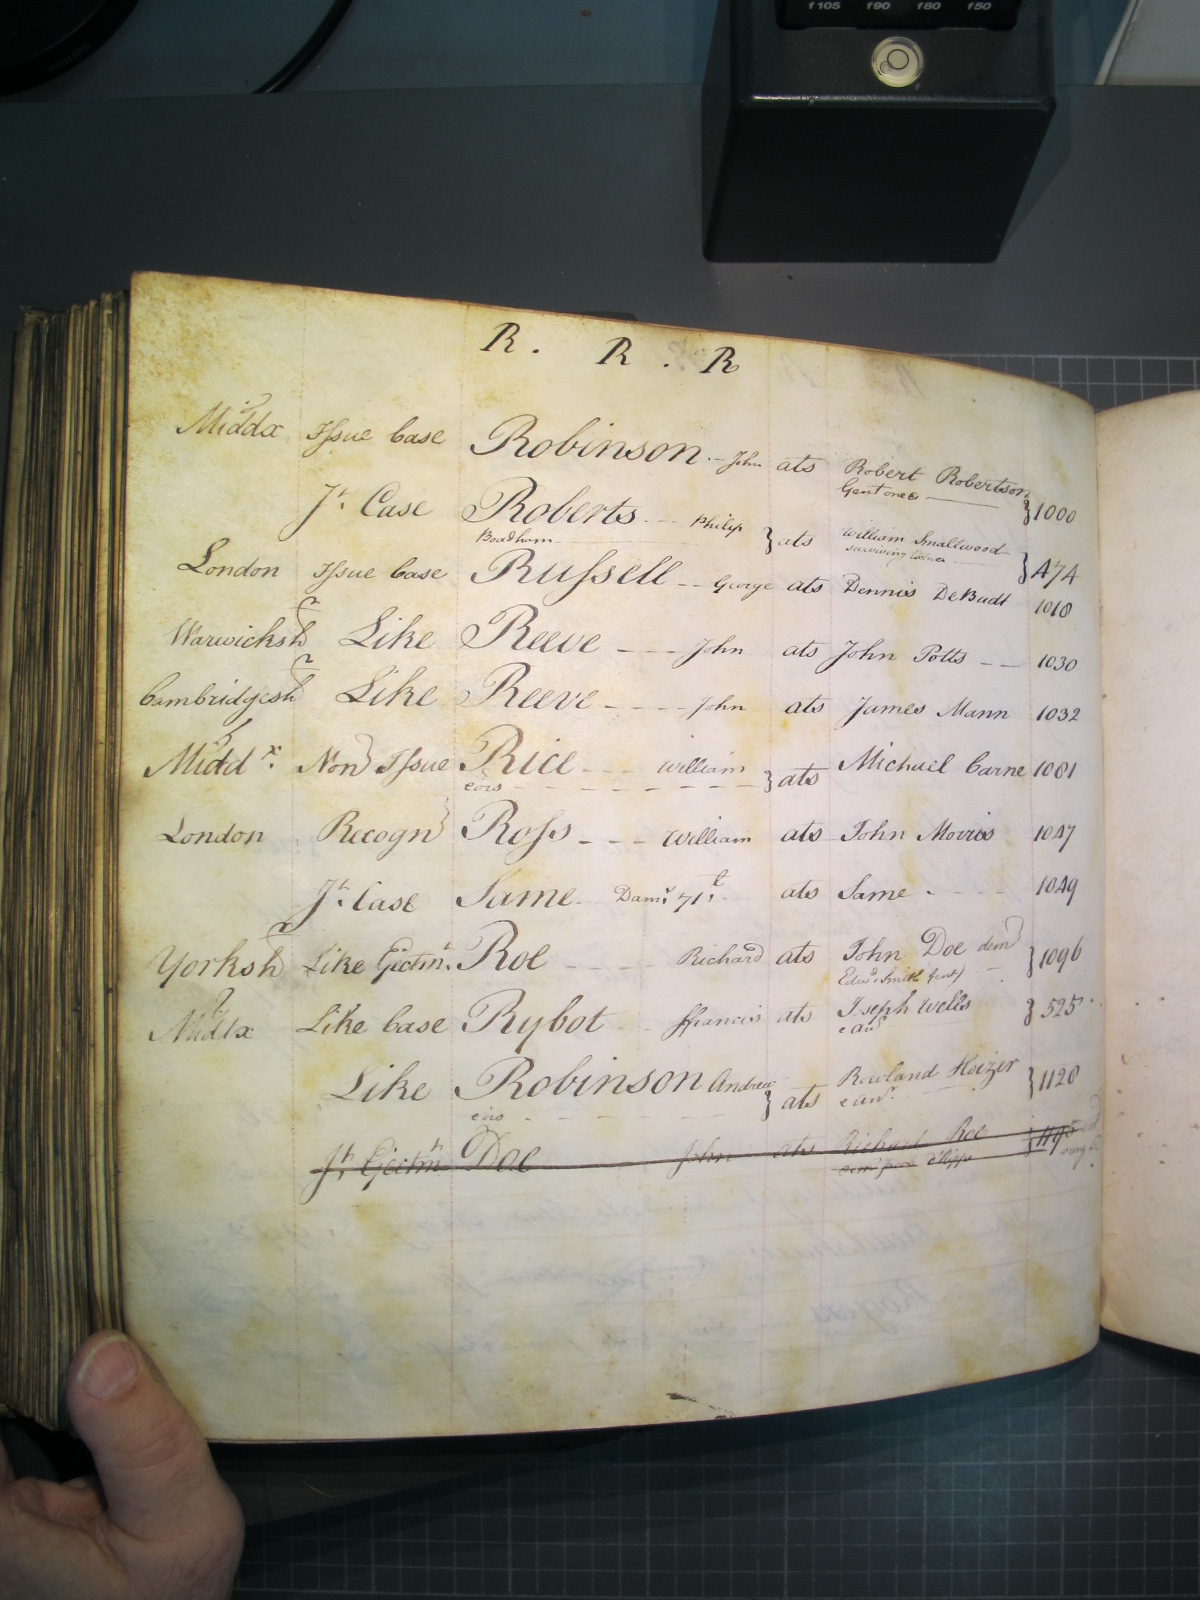 f105 f90 f80 f50
R . R . R
Middx Issue Case Robinson - John ats Robert Robertson
Gent one &
} 1000
Jt. Case Roberts - - Philip } ats William Smallwood
Boadham surviving } 474
London Issue Case Russell - - George ats Dennis DeBudt 1018
Warwicksh Like Reeve - - John ats John Potts - - 1030
Cambridgesh Like Reeve - - - John ats James Mann 1032
Middx. Non Issue Rice - - - William } ats Michael Carne 1081
eois
London Recogn Ross - - - William ats John Morris 1047
Jt. Case Same. Dams. 71 t. ats Same - - - 1049
Yorksh Like Ejectmt. Roe - - - Richard ats John Doe dem } 1096
Edwd. Smith
Middx Like Case Rybot - - ffrancis ats Joseph Wells } 525
& anr
Like Robinson Andrew } ats Rowland Hoizer } 1120
eois & anr.
Jt. Ejectmt Doe John ats Richard Roe } 1195